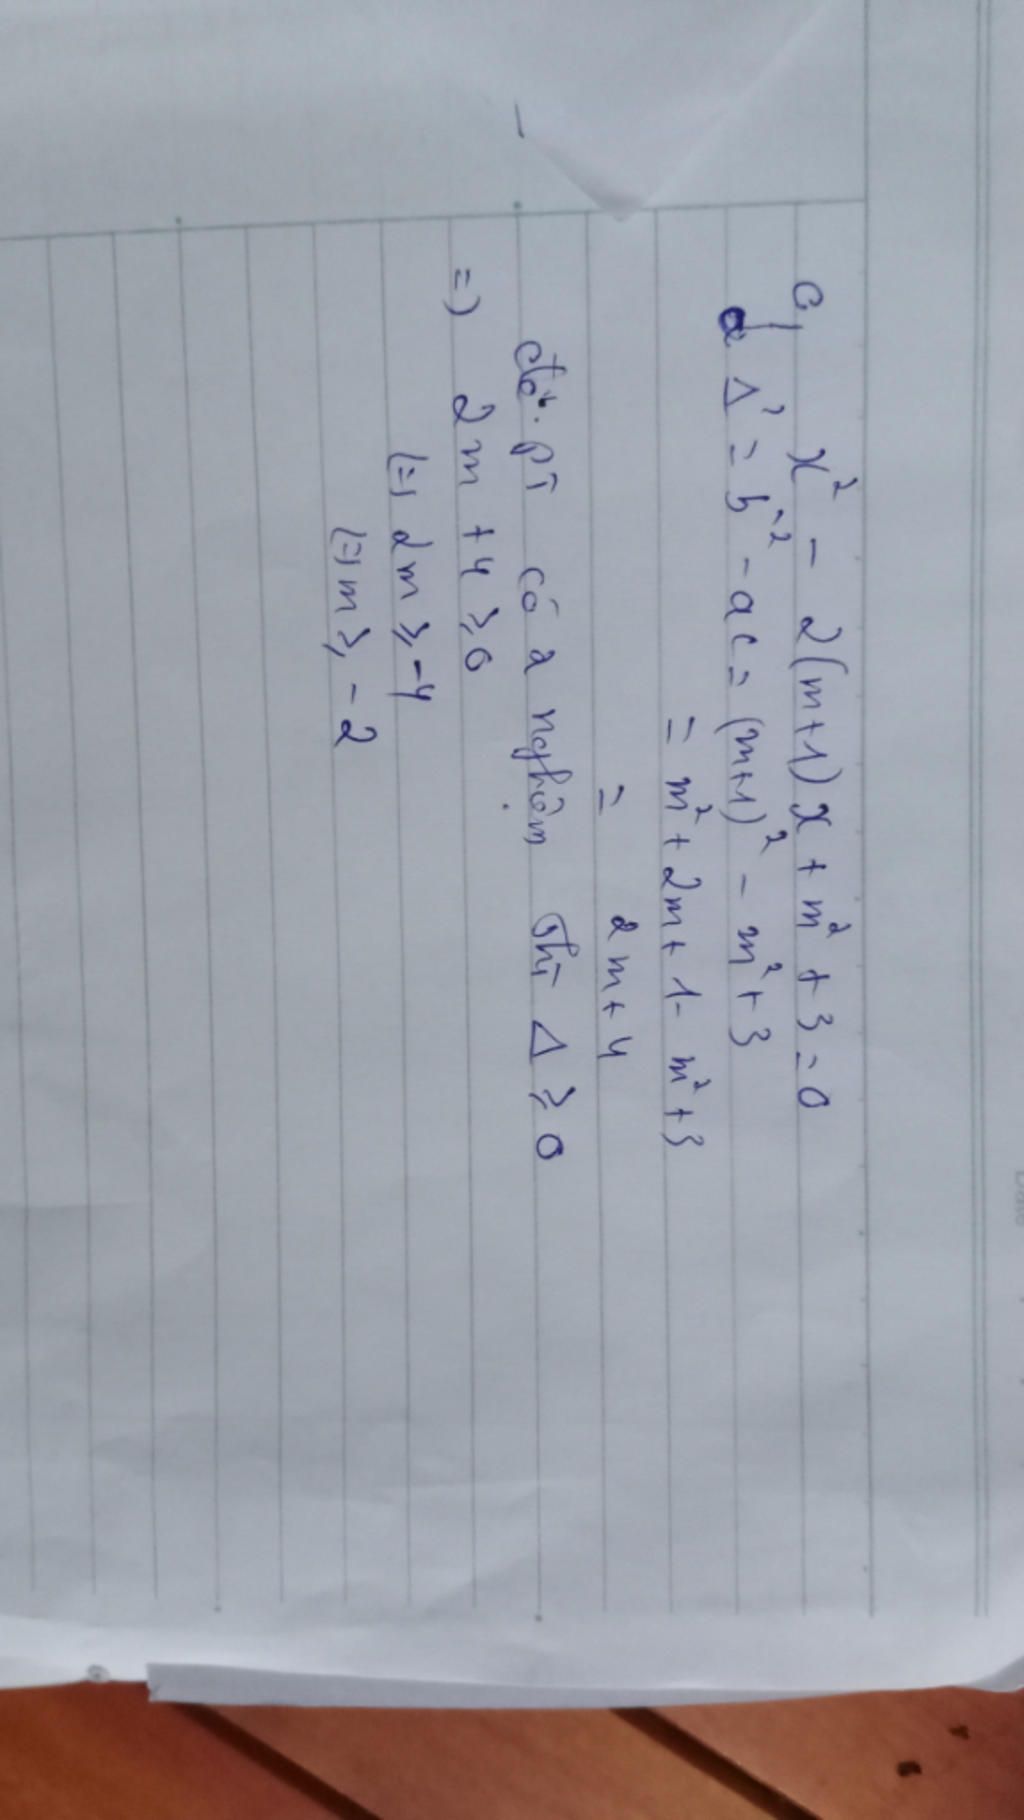 c, x² - 2(m+1)x + m² + 3 = 0
Δ' = b'² - ac = (m+1)² - m² + 3
= m² + 2m + 1 - m² + 3
= 2m + 4
để pt có 2 nghiệm thì Δ ≥ 0
=) 2m + 4 ≥ 0
(=) 2m ≥ -4
(=) m ≥ -2